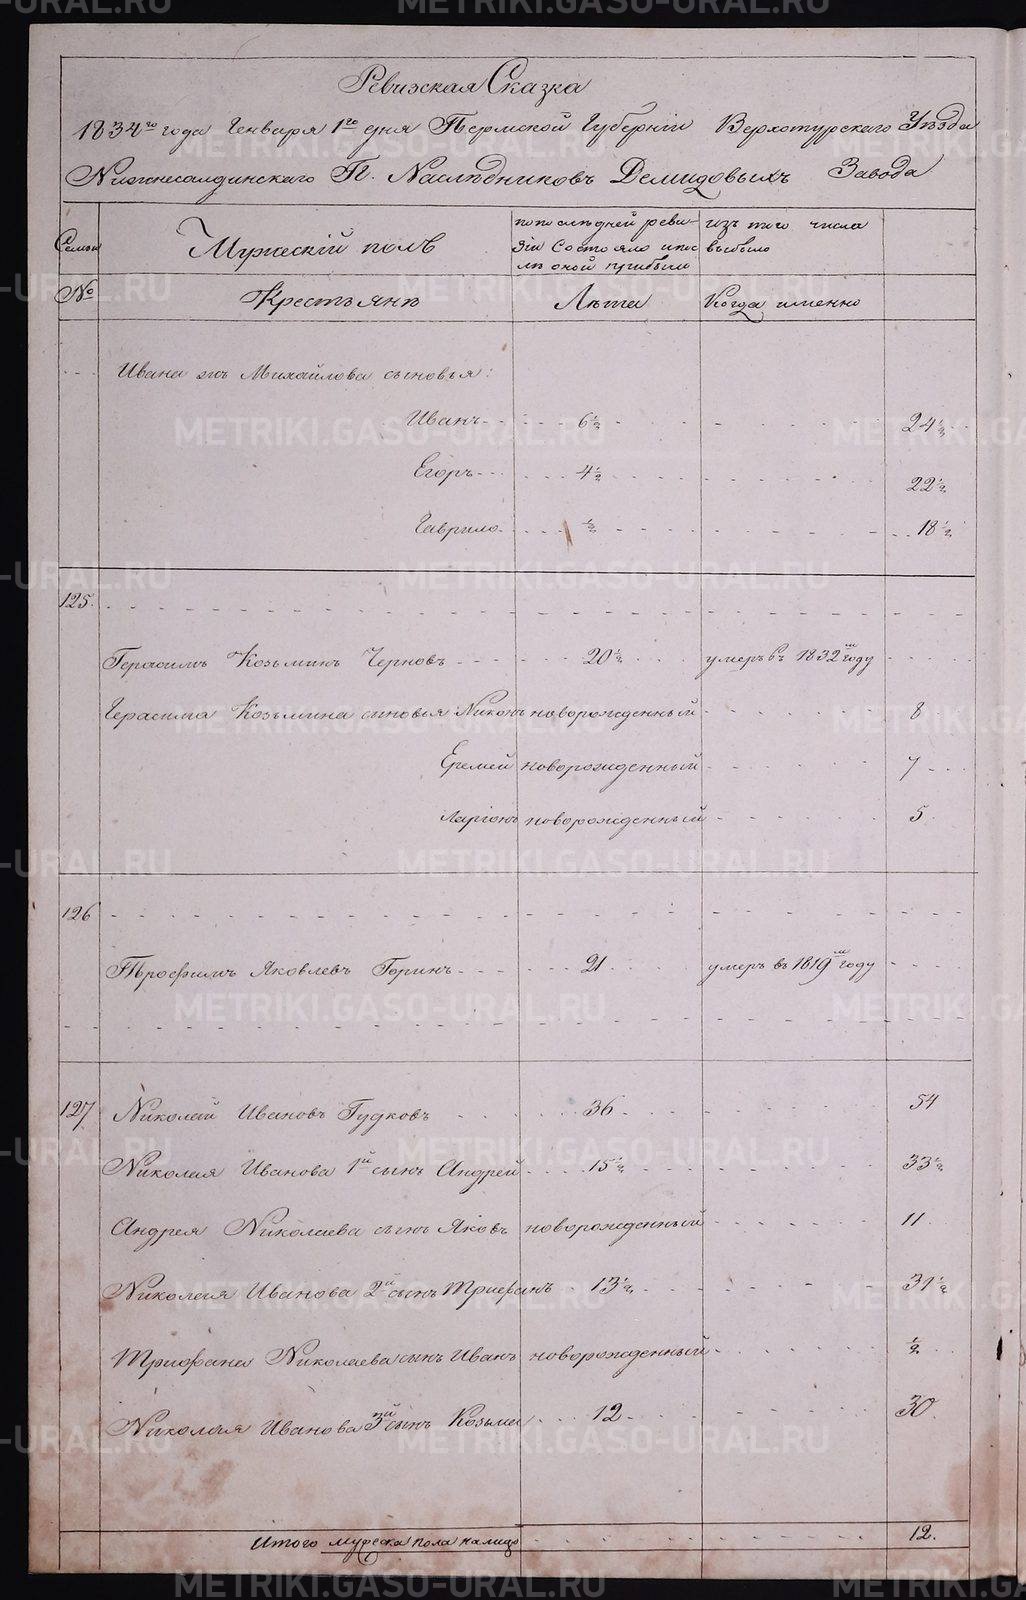 Ревизская Сказка
1834го года Генваря 1го дня Пермской Губернiи Верхотурскаго Уѣзда
Нижнесалдинскаго Г. Наслѣдниковъ Демидовыхъ Завода
Семьи
Мужескiй полъ
по последней реви-
зiи состояло и пос
лѣ оной прибыли
изъ того числа
выбыло
№
Крестьянъ
Лѣта
Когда именно
Ивана жъ Михайлова сыновья:
Иванъ 6½ 24½
Егоръ 4½ 22½
Гаврило ½ 18½
125.
Герасимъ Козьминъ Черновъ 20½ умеръ въ 1832м году
Герасима Козьмина сыновья Никонъ новорожденный 8
Еремей новорожденный 7
Ларiонъ новорожденный 5
126
Трофимъ Яковлевъ Горинъ 21 умеръ въ 1819м году
127 Николай Ивановъ Гудковъ 36 54
Николая Иванова 1й сынъ Андрей 15½ 33½
Андрея Николаева сынъ Яковъ новорожденный 11
Николая Иванова 2й сынъ Трифанъ 13½ 31½
Трифана Николаева сынъ Иванъ новорожденный ½
Николая Иванова 3й сынъ Козьма 12 30
Итого мужеска пола налицо 12.
METRIKI.GASO-URAL.RU